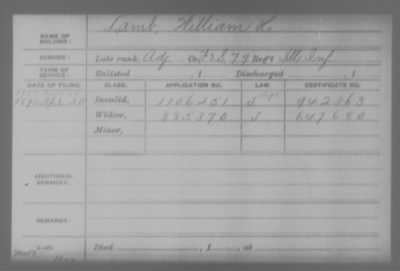 NAME OF SOLDIER: Lamb, William H.
SERVICE: Late rank, Adj Co. F&S, 79 Reg't Ills Inf
TERM OF SERVICE: Enlisted , 1 Discharged , 1
DATE OF FILING. CLASS. APPLICATION NO. LAW. CERTIFICATE NO.
1890 20 Invalid, 1106201 942363
Widow, 885370 647680
Minor,
ADDITIONAL SERVICES:
REMARKS:
Died , 1 , at